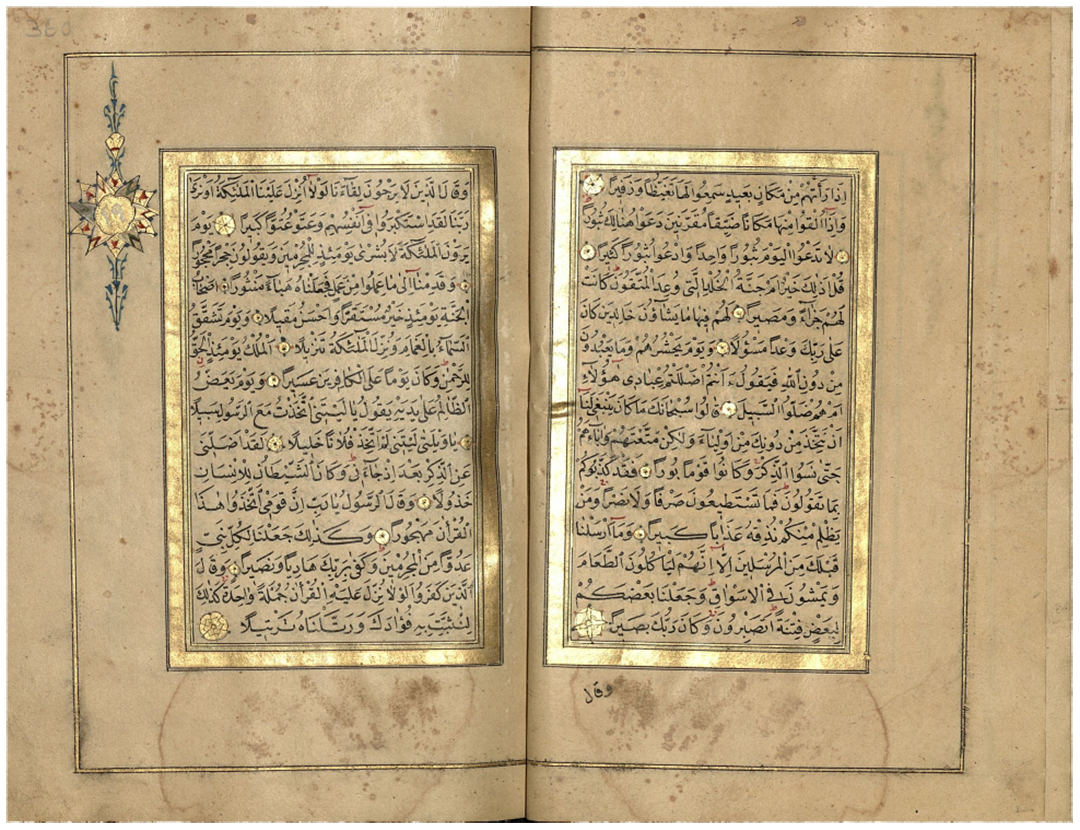 اِذَا رَاَتْهُمْ مِنْ مَكَانٍ بَعِيدٍ سَمِعُوا لَهَا تَغَيُّظًا وَزَفِيرًا
وَاِذَا اُلْقُوا مِنْهَا مَكَانًا ضَيِّقًا مُقَرَّنِينَ دَعَوْا هُنَالِكَ ثُبُورًا
لَا تَدْعُوا الْيَوْمَ ثُبُورًا وَاحِدًا وَادْعُوا ثُبُورًا كَثِيرًا
قُلْ اَذٰلِكَ خَيْرٌ اَمْ جَنَّةُ الْخُلْدِ الَّتِى وُعِدَ الْمُتَّقُونَ كَانَتْ
لَهُمْ جَزَاءً وَمَصِيرًا لَهُمْ فِيهَا مَا يَشَاؤُنَ خَالِدِينَ كَانَ
عَلٰى رَبِّكَ وَعْدًا مَسْؤُلًا وَيَوْمَ يَحْشُرُهُمْ وَمَا يَعْبُدُونَ
مِنْ دُونِ اللّٰهِ فَيَقُولُ ءَاَنْتُمْ اَضْلَلْتُمْ عِبَادِى هٰؤُلَاءِ
اَمْ هُمْ ضَلُّوا السَّبِيلَ قَالُوا سُبْحَانَكَ مَا كَانَ يَنْبَغِى لَنَا
اَنْ نَتَّخِذَ مِنْ دُونِكَ مِنْ اَوْلِيَاءَ وَلٰكِنْ مَتَّعْتَهُمْ وَاٰبَاءَهُمْ
حَتّٰى نَسُوا الذِّكْرَ وَكَانُوا قَوْمًا بُورًا فَقَدْ كَذَّبُوكُمْ
بِمَا تَقُولُونَ فَمَا تَسْتَطِيعُونَ صَرْفًا وَلَا نَصْرًا وَمَنْ
يَظْلِمْ مِنْكُمْ نُذِقْهُ عَذَابًا كَبِيرًا وَمَا اَرْسَلْنَا
قَبْلَكَ مِنَ الْمُرْسَلِينَ اِلَّا اِنَّهُمْ لَيَأْكُلُونَ الطَّعَامَ
وَيَمْشُونَ فِى الْاَسْوَاقِ وَجَعَلْنَا بَعْضَكُمْ
لِبَعْضٍ فِتْنَةً اَتَصْبِرُونَ وَكَانَ رَبُّكَ بَصِيرًا
وقال
وَقَالَ الَّذِينَ لَا يَرْجُونَ لِقَاءَنَا لَوْلَا اُنْزِلَ عَلَيْنَا الْمَلٰئِكَةُ اَوْ نَرٰى
رَبَّنَا لَقَدِ اسْتَكْبَرُوا فِى اَنْفُسِهِمْ وَعَتَوْ عُتُوًّا كَبِيرًا يَوْمَ
يَرَوْنَ الْمَلٰئِكَةَ لَا بُشْرٰى يَوْمَئِذٍ لِلْمُجْرِمِينَ وَيَقُولُونَ حِجْرًا مَحْجُورًا
وَقَدِمْنَا اِلٰى مَا عَمِلُوا مِنْ عَمَلٍ فَجَعَلْنَاهُ هَبَاءً مَنْثُورًا اَصْحَابُ
الْجَنَّةِ يَوْمَئِذٍ خَيْرٌ مُسْتَقَرًّا وَاَحْسَنُ مَقِيلًا وَيَوْمَ تَشَقَّقُ
السَّمَاءُ بِالْغَمَامِ وَنُزِّلَ الْمَلٰئِكَةُ تَنْزِيلًا اَلْمُلْكُ يَوْمَئِذٍ الْحَقُّ
لِلرَّحْمٰنِ وَكَانَ يَوْمًا عَلَى الْكَافِرِينَ عَسِيرًا وَيَوْمَ يَعَضُّ
الظَّالِمُ عَلٰى يَدَيْهِ يَقُولُ يَا لَيْتَنِى اتَّخَذْتُ مَعَ الرَّسُولِ سَبِيلًا
يَا وَيْلَتٰى لَيْتَنِى لَمْ اَتَّخِذْ فُلَانًا خَلِيلًا لَقَدْ اَضَلَّنِى
عَنِ الذِّكْرِ بَعْدَ اِذْ جَاءَنِى وَكَانَ الشَّيْطَانُ لِلْاِنْسَانِ
خَذُولًا وَقَالَ الرَّسُولُ يَا رَبِّ اِنَّ قَوْمِى اتَّخَذُوا هٰذَا
الْقُرْاٰنَ مَهْجُورًا وَكَذٰلِكَ جَعَلْنَا لِكُلِّ نَبِىٍّ
عَدُوًّا مِنَ الْمُجْرِمِينَ وَكَفٰى بِرَبِّكَ هَادِيًا وَنَصِيرًا وَقَالَ
الَّذِينَ كَفَرُوا لَوْلَا نُزِّلَ عَلَيْهِ الْقُرْاٰنُ جُمْلَةً وَاحِدَةً كَذٰلِكَ
لِنُثَبِّتَ بِهِ فُؤَادَكَ وَرَتَّلْنَاهُ تَرْتِيلًا